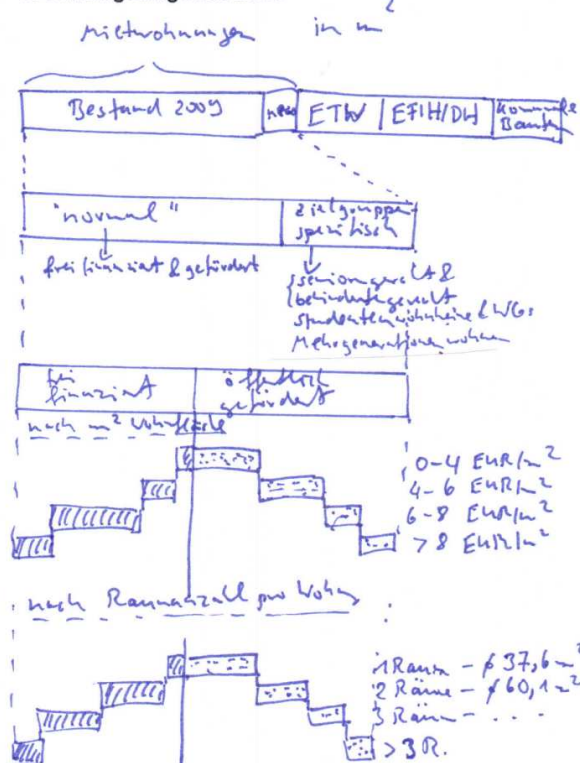 Mietwohnungen in m²
Bestand 2009 neu ETW EFIH/DH kommunale Bauten
"normal" zielgruppen-
spezifisch
frei finanziert & gefördert
seniorengerecht &
behindertengerecht
Studentenwohnheime & WGs
Mehrgenerationenwohnen
frei öffentlich
finanziert gefördert
nach m² Wohnfläche
0-4 EUR/m²
4-6 EUR/m²
6-8 EUR/m²
>8 EUR/m²
nach Raumanzahl pro Wohng
1 Raum - ø 37,6 m²
2 Räume - ø 60,1 m²
3 Räum - . . .
>3 R.